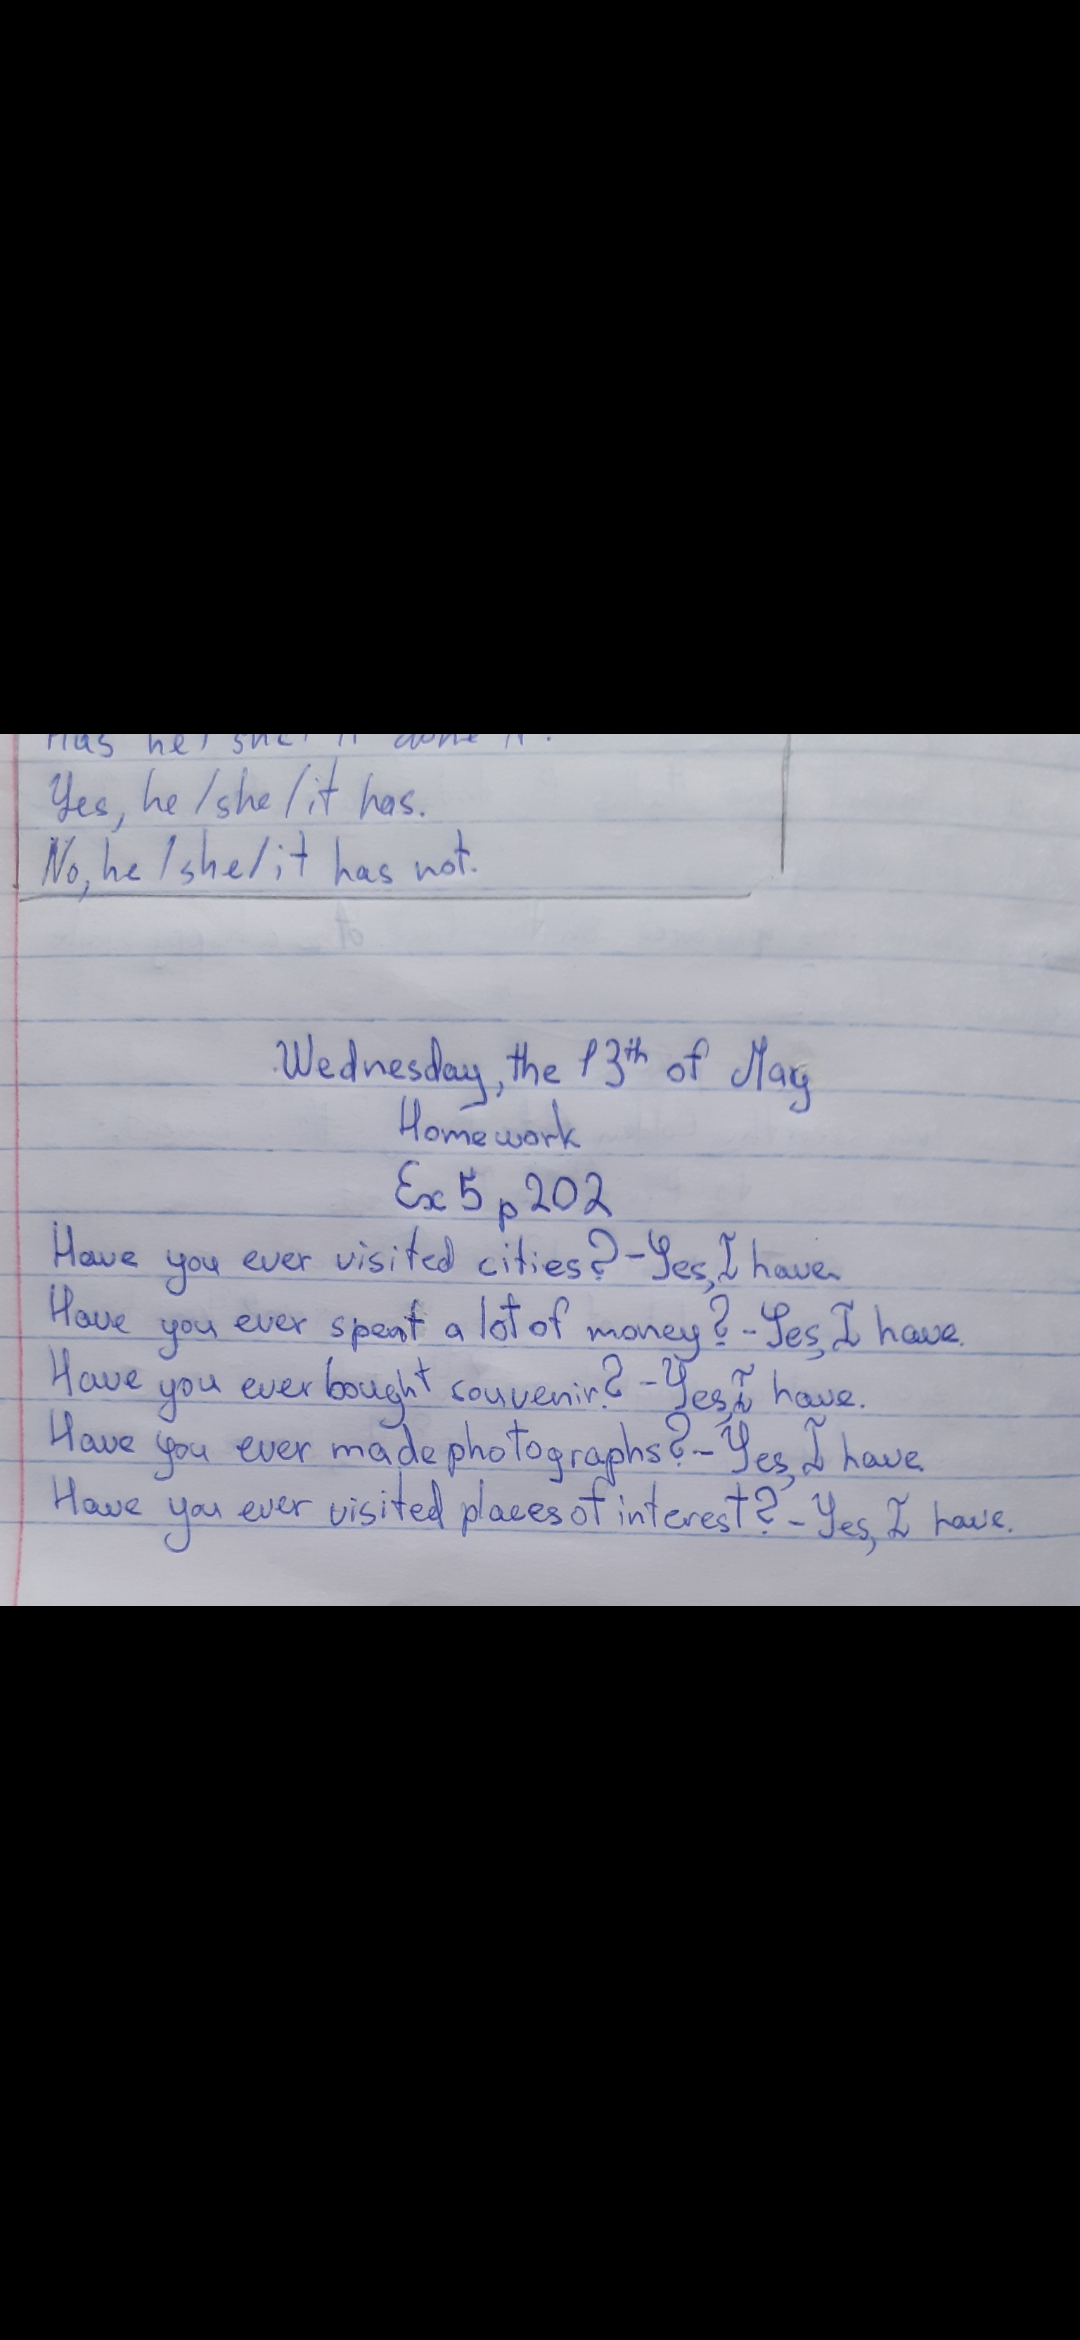 Has he/ she/ it done it?
Yes, he/she/it has.
No, he/she/it has not.
Wednesday, the 13th of May
Homework
Ex 5 p 202
Have you ever visited cities? - Yes, I have.
Have you ever spent a lot of money? - Yes, I have.
Have you ever bought souvenir? - Yes, I have.
Have you ever made photographs? - Yes, I have.
Have you ever visited places of interest? - Yes, I have.